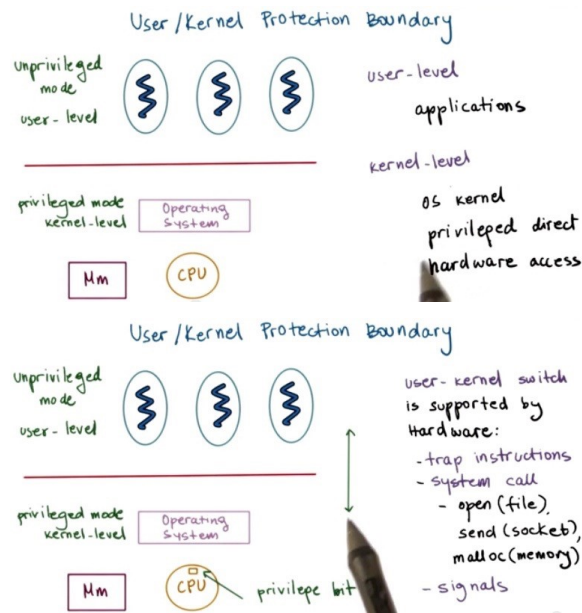 User/Kernel Protection Boundary
unprivileged
mode
user-level
user-level
applications
kernel-level
privileged mode
kernel-level
Operating
System
OS kernel
privileped direct
hardware access
Mm
CPU
User/Kernel Protection Boundary
unprivileged
mode
user-level
user-kernel switch
is supported by
Hardware:
-trap instructions
-system call
- open(file),
send(socket),
malloc(memory)
-signals
privileged mode
kernel-level
Operating
System
Mm
CPU
privilepe bit